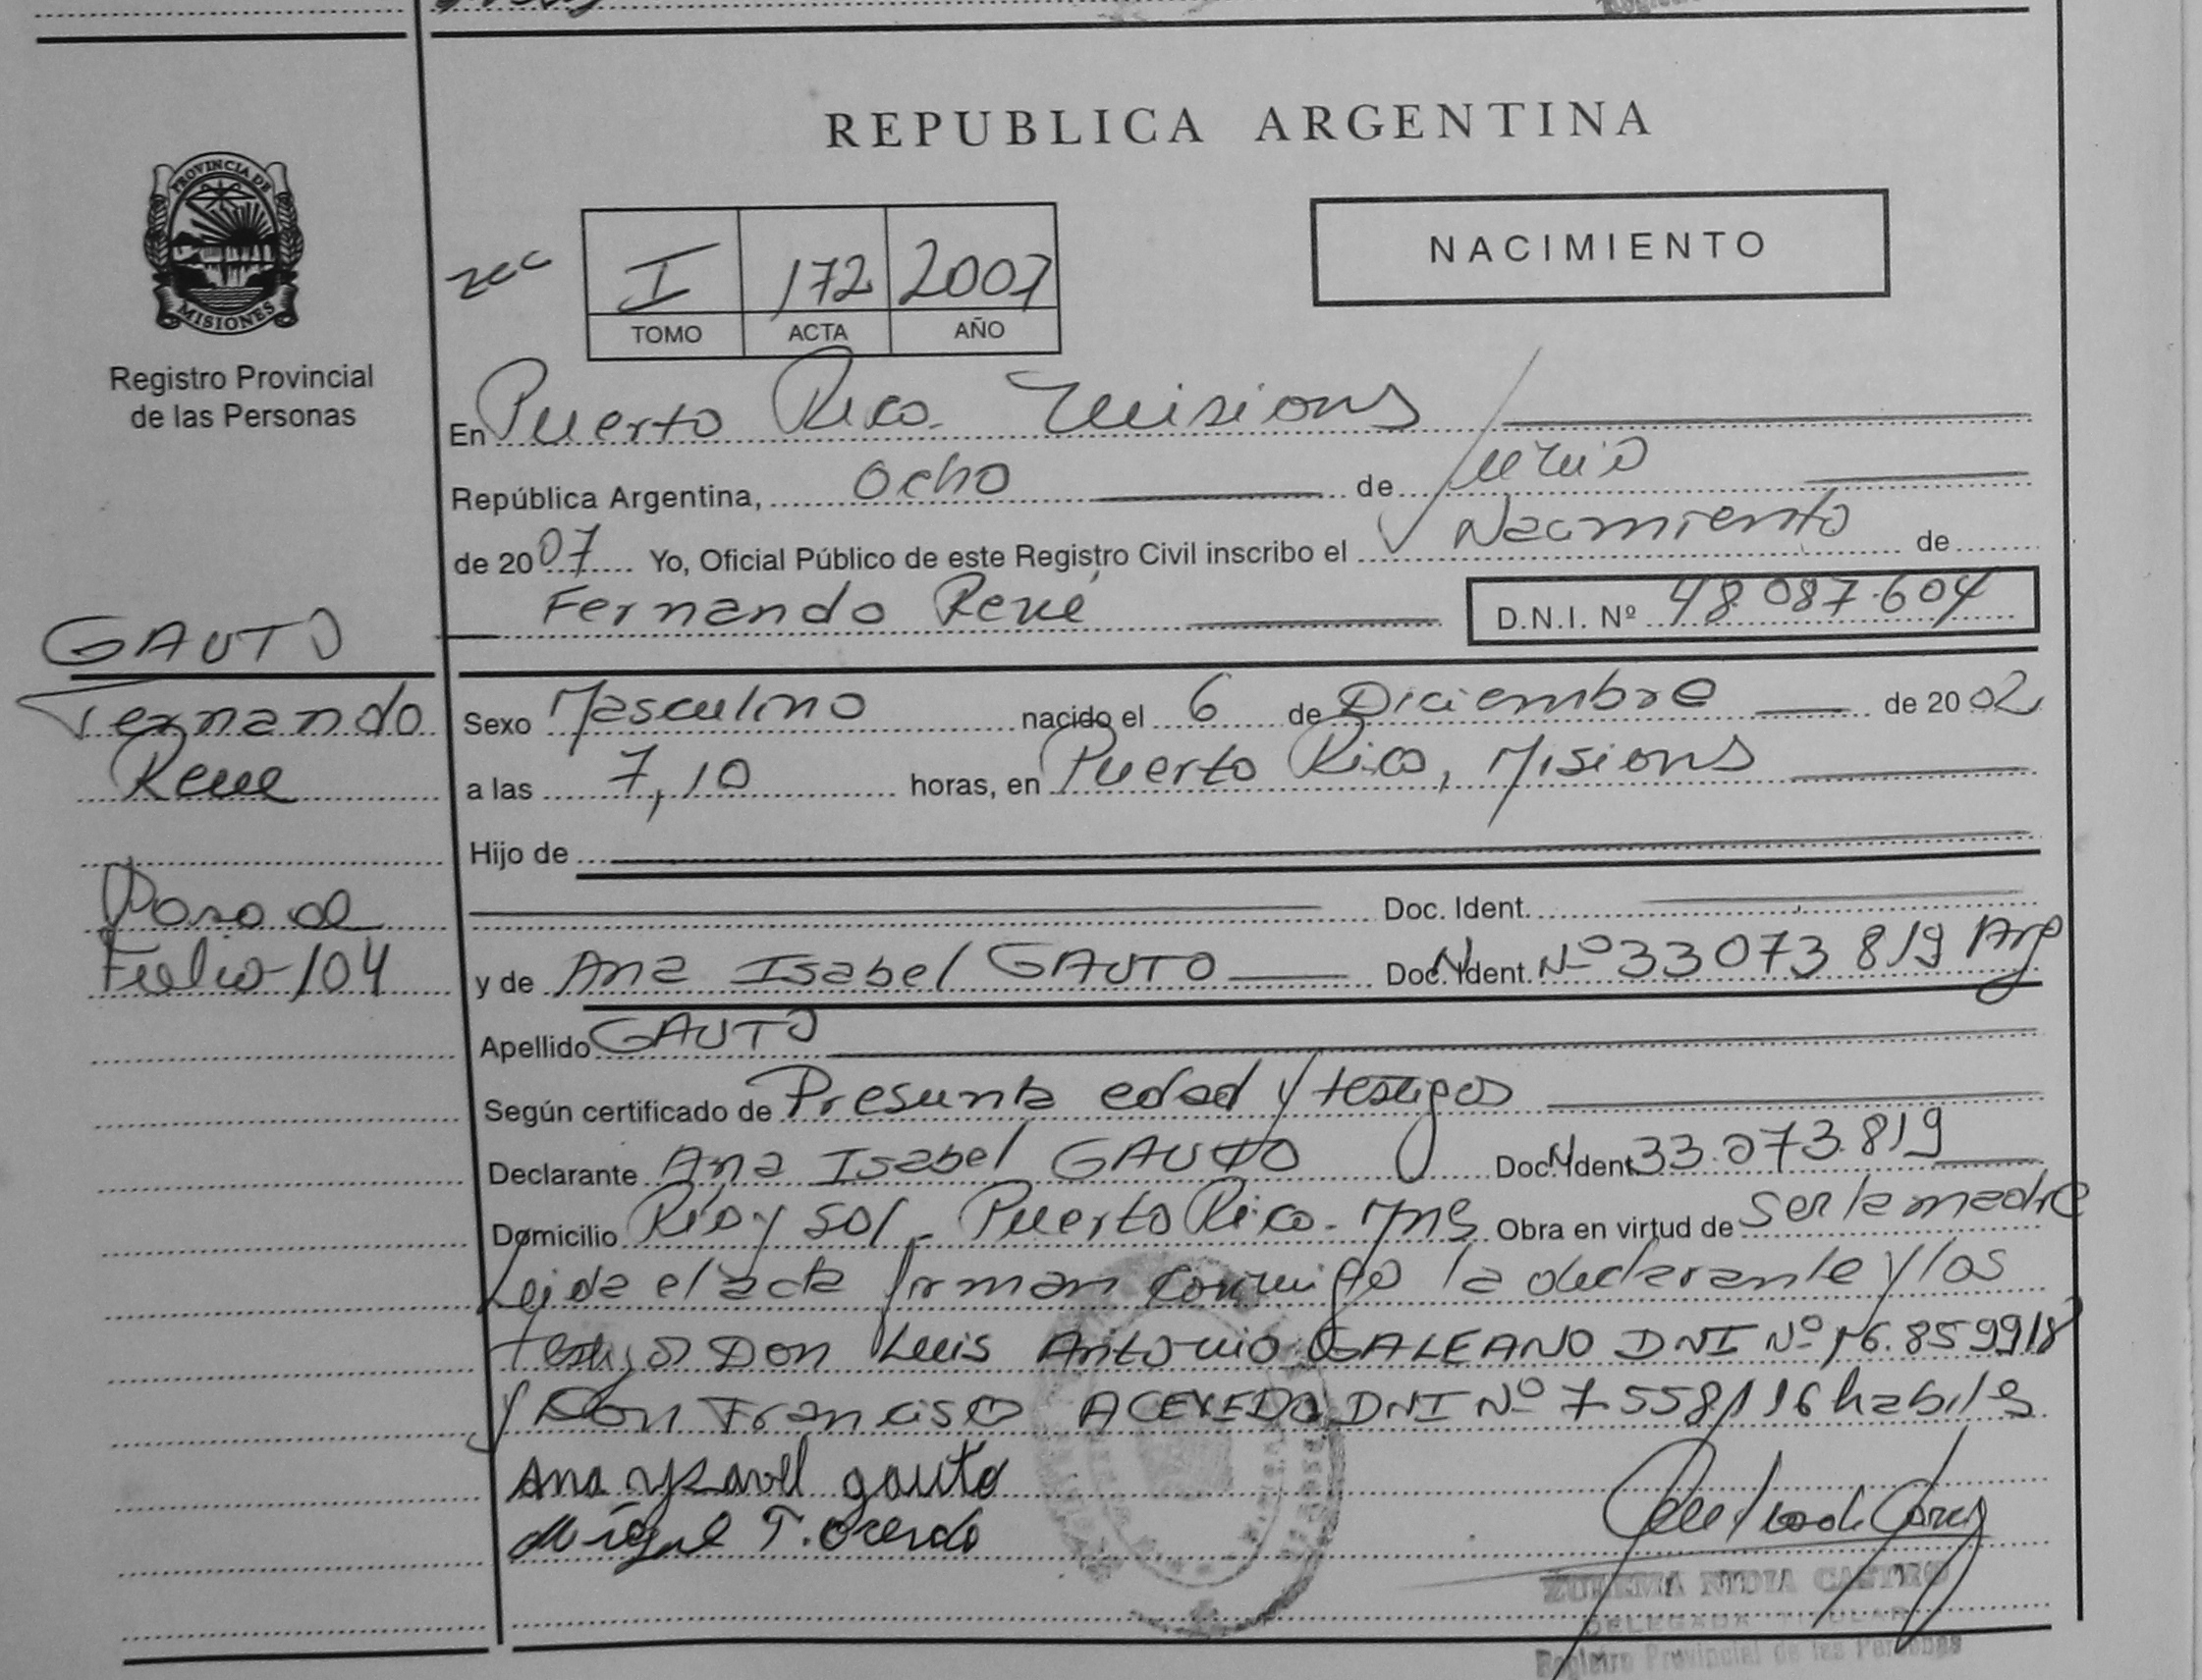 REPUBLICA ARGENTINA
PROVINCIA DE
MISIONES
Registro Provincial
de las Personas
NACIMIENTO
I 172 2007
TOMO ACTA AÑO
En Puerto Rico. Misiones
República Argentina, Ocho de Junio
de 2007 Yo, Oficial Público de este Registro Civil inscribo el Nacimiento de
Fernando René D.N.I. Nº 48.087.604
GAUTO
Fernando
Rene
Sexo Masculino nacido el 6 de Diciembre de 2002
a las 7,10 horas, en Puerto Rico, Misiones
Hijo de
Doc. Ident.
Folio 104
y de Ana Isabel GAUTO Doc. Ident. Nº 33073819 Arg
Apellido GAUTO
Según certificado de Presunta edad y testigos
Declarante Ana Isabel GAUTO Doc. Ident. 33.073.819
Domicilio Río y Sol - Puerto Rico - Mns Obra en virtud de ser la madre
Leida el acta firman conmigo la declarante y los
testigos Don Luis Antonio GALEANO DNI Nº 16.859918
y Don Francisco ACEVEDO DNI Nº 7.558116 habiles
Ana ysavel gauto
Miguel
ZULEMA NIDIA CASTRO
DELEGADA TITULAR
Registro Provincial de las Personas